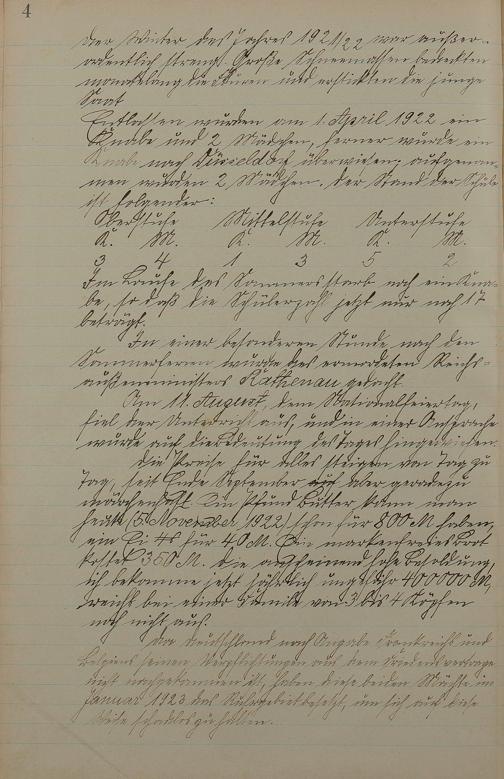 4
Der Winter des Jahres 1921/22 war außer-
ordentlich streng. Große Schneemassen bedeckten
monatelang die Fluren und erstickten die junge
Saat
Entlassen wurden am 1. April 1922 ein
Knabe und 2 Mädchen, ferner wurde ein
Knabe nach Düsseldorf überwiesen; aufgenom-
men wurden 2 Mädchen. Der Stand der Schule
ist folgender:
Oberstufe Mittelstufe Unterstufe
K. M. K. M. K. M.
3 4 1 3 5 2
Im Laufe des Sommers starb noch ein Kna-
be, so daß die Schülerzahl jetzt nur noch 17
beträgt.
In einer besonderen Stunde nach den
Sommerferien wurde des ermordeten Reichs-
außenministers Rathenau gedacht.
Am 11. August, dem Nationalfeiertag,
fiel der Unterricht aus, und in einer Ansprache
wurde auf die Bedeutung des Tages hingewiesen.
Die Preise für alles steigen von Tag zu
Tag, seit Ende September aber geradezu
märchenhaft. Ein Pfund Butter kann man
heute (5. November 1922) schon für 800 M haben,
ein Ei für 40 M. Ein markenfreies Brot
kostet 350 M. Die anscheinend hohe Besoldung,
ich bekomme jetzt jährlich ungefähr 400000 M,
reicht bei einer Familie von 3 bis 4 Köpfen
noch nicht aus.
Da Deutschland nach Angabe Frankreichs und
Belgiens seinen Verpflichtungen aus dem Friedensvertrage
nicht nachgekommen ist, haben diese beiden Mächte im
Januar 1923 das Ruhrgebiet besetzt, um sich auf diese
Weise schadlos zu halten.